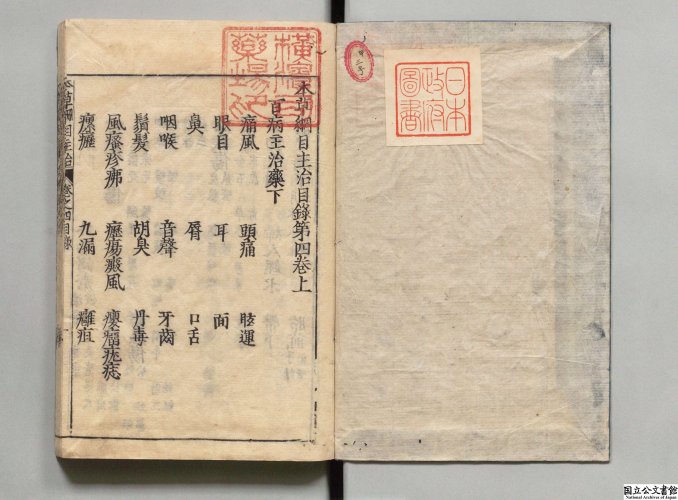 日本
政府
圖書
本草綱目主治目錄第四卷上
百病主治藥下
痛風 頭痛 眩運
眼目 耳 面
鼻 脣 口舌
咽喉 音聲 牙齒
鬚髮 胡臭 丹毒
風瘙疹疿 癧瘍癜風 癭瘤疣痣
瘰癧 九漏 癰疽
本草綱目主治 卷之四目錄
横濱司
藥場印
国立公文書館
National Archives of Japan